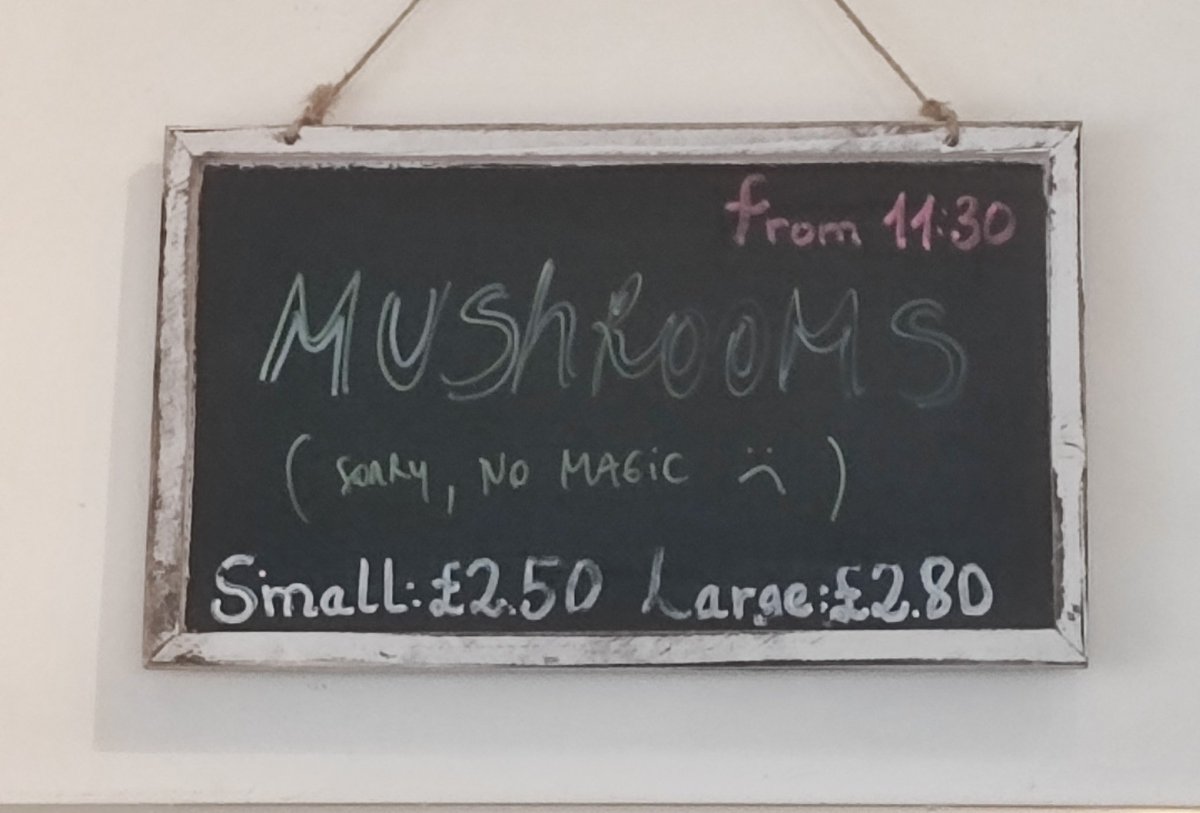 from 11:30
MUShROOMS
(SORRy, NO MAGiC :()
Small:£2.50 Large:£2.80